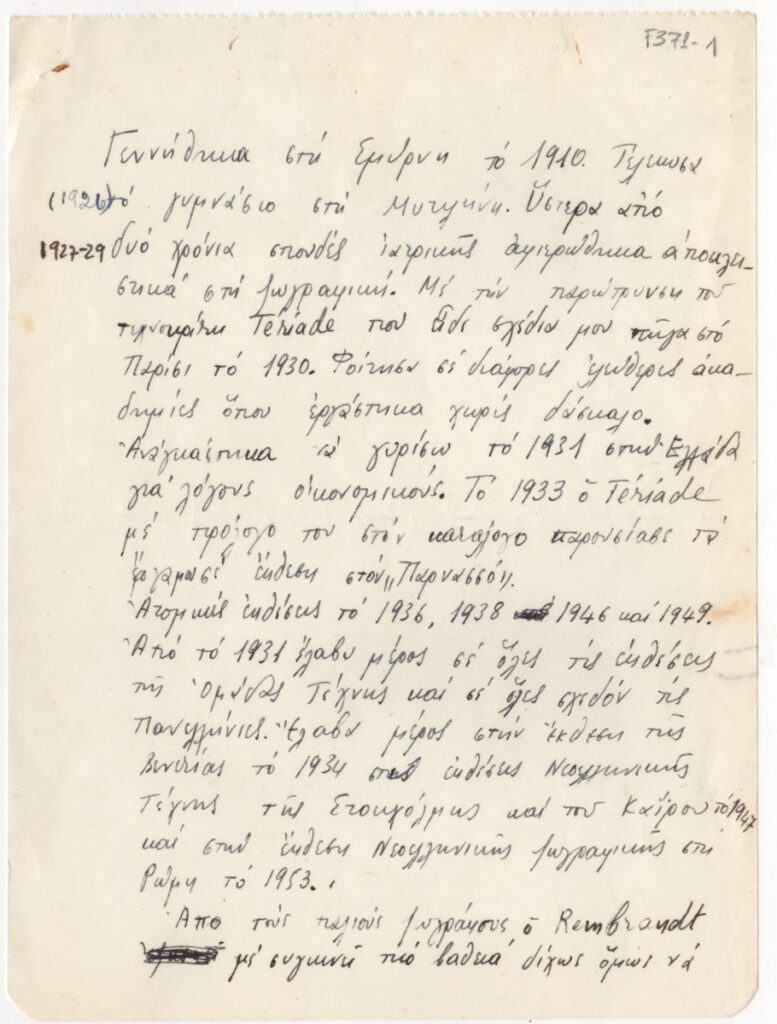 F371-1
Γεννήθηκα στή Σμύρνη τό 1910. Τέλειωσα
(1926) τό γυμνάσιο στή Μυτιλήνη. Ὕστερα ἀπό
1927-29 δυό χρόνια σπουδές ἰατρικῆς ἀφιερώθηκα ἀποκλει-
στικά στή ζωγραφική. Μέ τήν παρώτρυνση τοῦ
τεχνοκρίτη Tériade πού εἶδε σχέδιά μου πῆγα στό
Παρίσι τό 1930. Φοίτησα σέ διάφορες ἐλεύθερες ἀκα-
δημίες ὅπου ἐργάστηκα χωρίς δάσκαλο.
Ἀναγκάστηκα νά γυρίσω τό 1931 στήν Ἑλλάδα
γιά λόγους οἰκονομικούς. Τό 1933 ὁ Tériade
μέ πρόλογό του στόν κατάλογο παρουσίασε τά
ἔργα μου σέ ἔκθεση στόν „Παρνασσό".
Ἀτομικές ἐκθέσεις τό 1936, 1938 1946 καί 1949.
Ἀπό τό 1931 ἔλαβα μέρος σέ ὅλες τίς ἐκθέσεις
τῆς Ὁμάδας Τέχνης καί σέ ὅλες σχεδόν τίς
Πανελλήνιες. Ἔλαβα μέρος στήν ἔκθεση τῆς
Βενετίας τό 1934 στίς ἐκθέσεις Νεοελληνικῆς
Τέχνης τῆς Στοκχόλμης καί τοῦ Καΐρου τό 1947
καί στήν ἔκθεση Νεοελληνικῆς ζωγραφικῆς στή
Ρώμη τό 1953.
Ἀπό τούς παλιούς ζωγράφους ὁ Rembrandt
μέ συγκινεῖ πιό βαθειά δίχως ὅμως νά